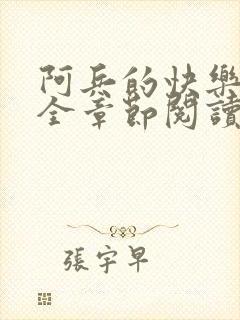 阿兵的快樂
全章節閱讀
張宇早